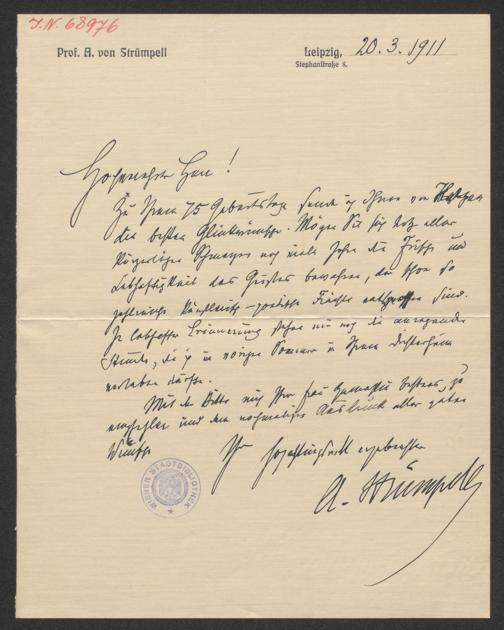 J.N. 68976
Prof. A. von Strümpell
Leipzig, 20.3.1911
Stephanstraße 8.
Hochverehrter Herr!
Zu Ihrem 75 Geburtstage sende ich Ihnen von Herzen
die besten Glückwünsche. Mögen Sie sich trotz aller
körperlichen Schmerzen noch viele Jahre die Frische und
Lebhaftigkeit des Geistes bewahren, der schon so
zahlreiche künstlerisch-poetische Früchte entsprossen sind.
In lebhafter Erinnerung stehen mir noch die anregenden
Stunden, die ich im vorigen Sommer in Ihrem Dichterheim
verleben durfte.
Mit der Bitte mich Ihrer Frau Gemahlin bestens zu
empfehlen und dem nochmaligen Ausdruck aller guten
Wünsche
Ihr hochachtungsvoll ergebenster
A. Strümpell
WIENER STADTBIBLIOTHEK